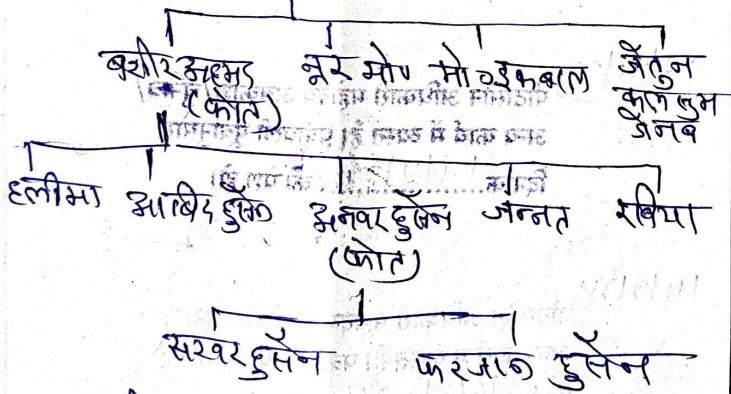 बशीर अहमद नूर मो० मो० इकबाल जैतुन
(फोत) कुलसुम
जैनब
हलीमा आबिद हुसैन अनवर हुसैन जन्नत रबिया
(फोत)
सरवर हुसैन फरजान हुसैन